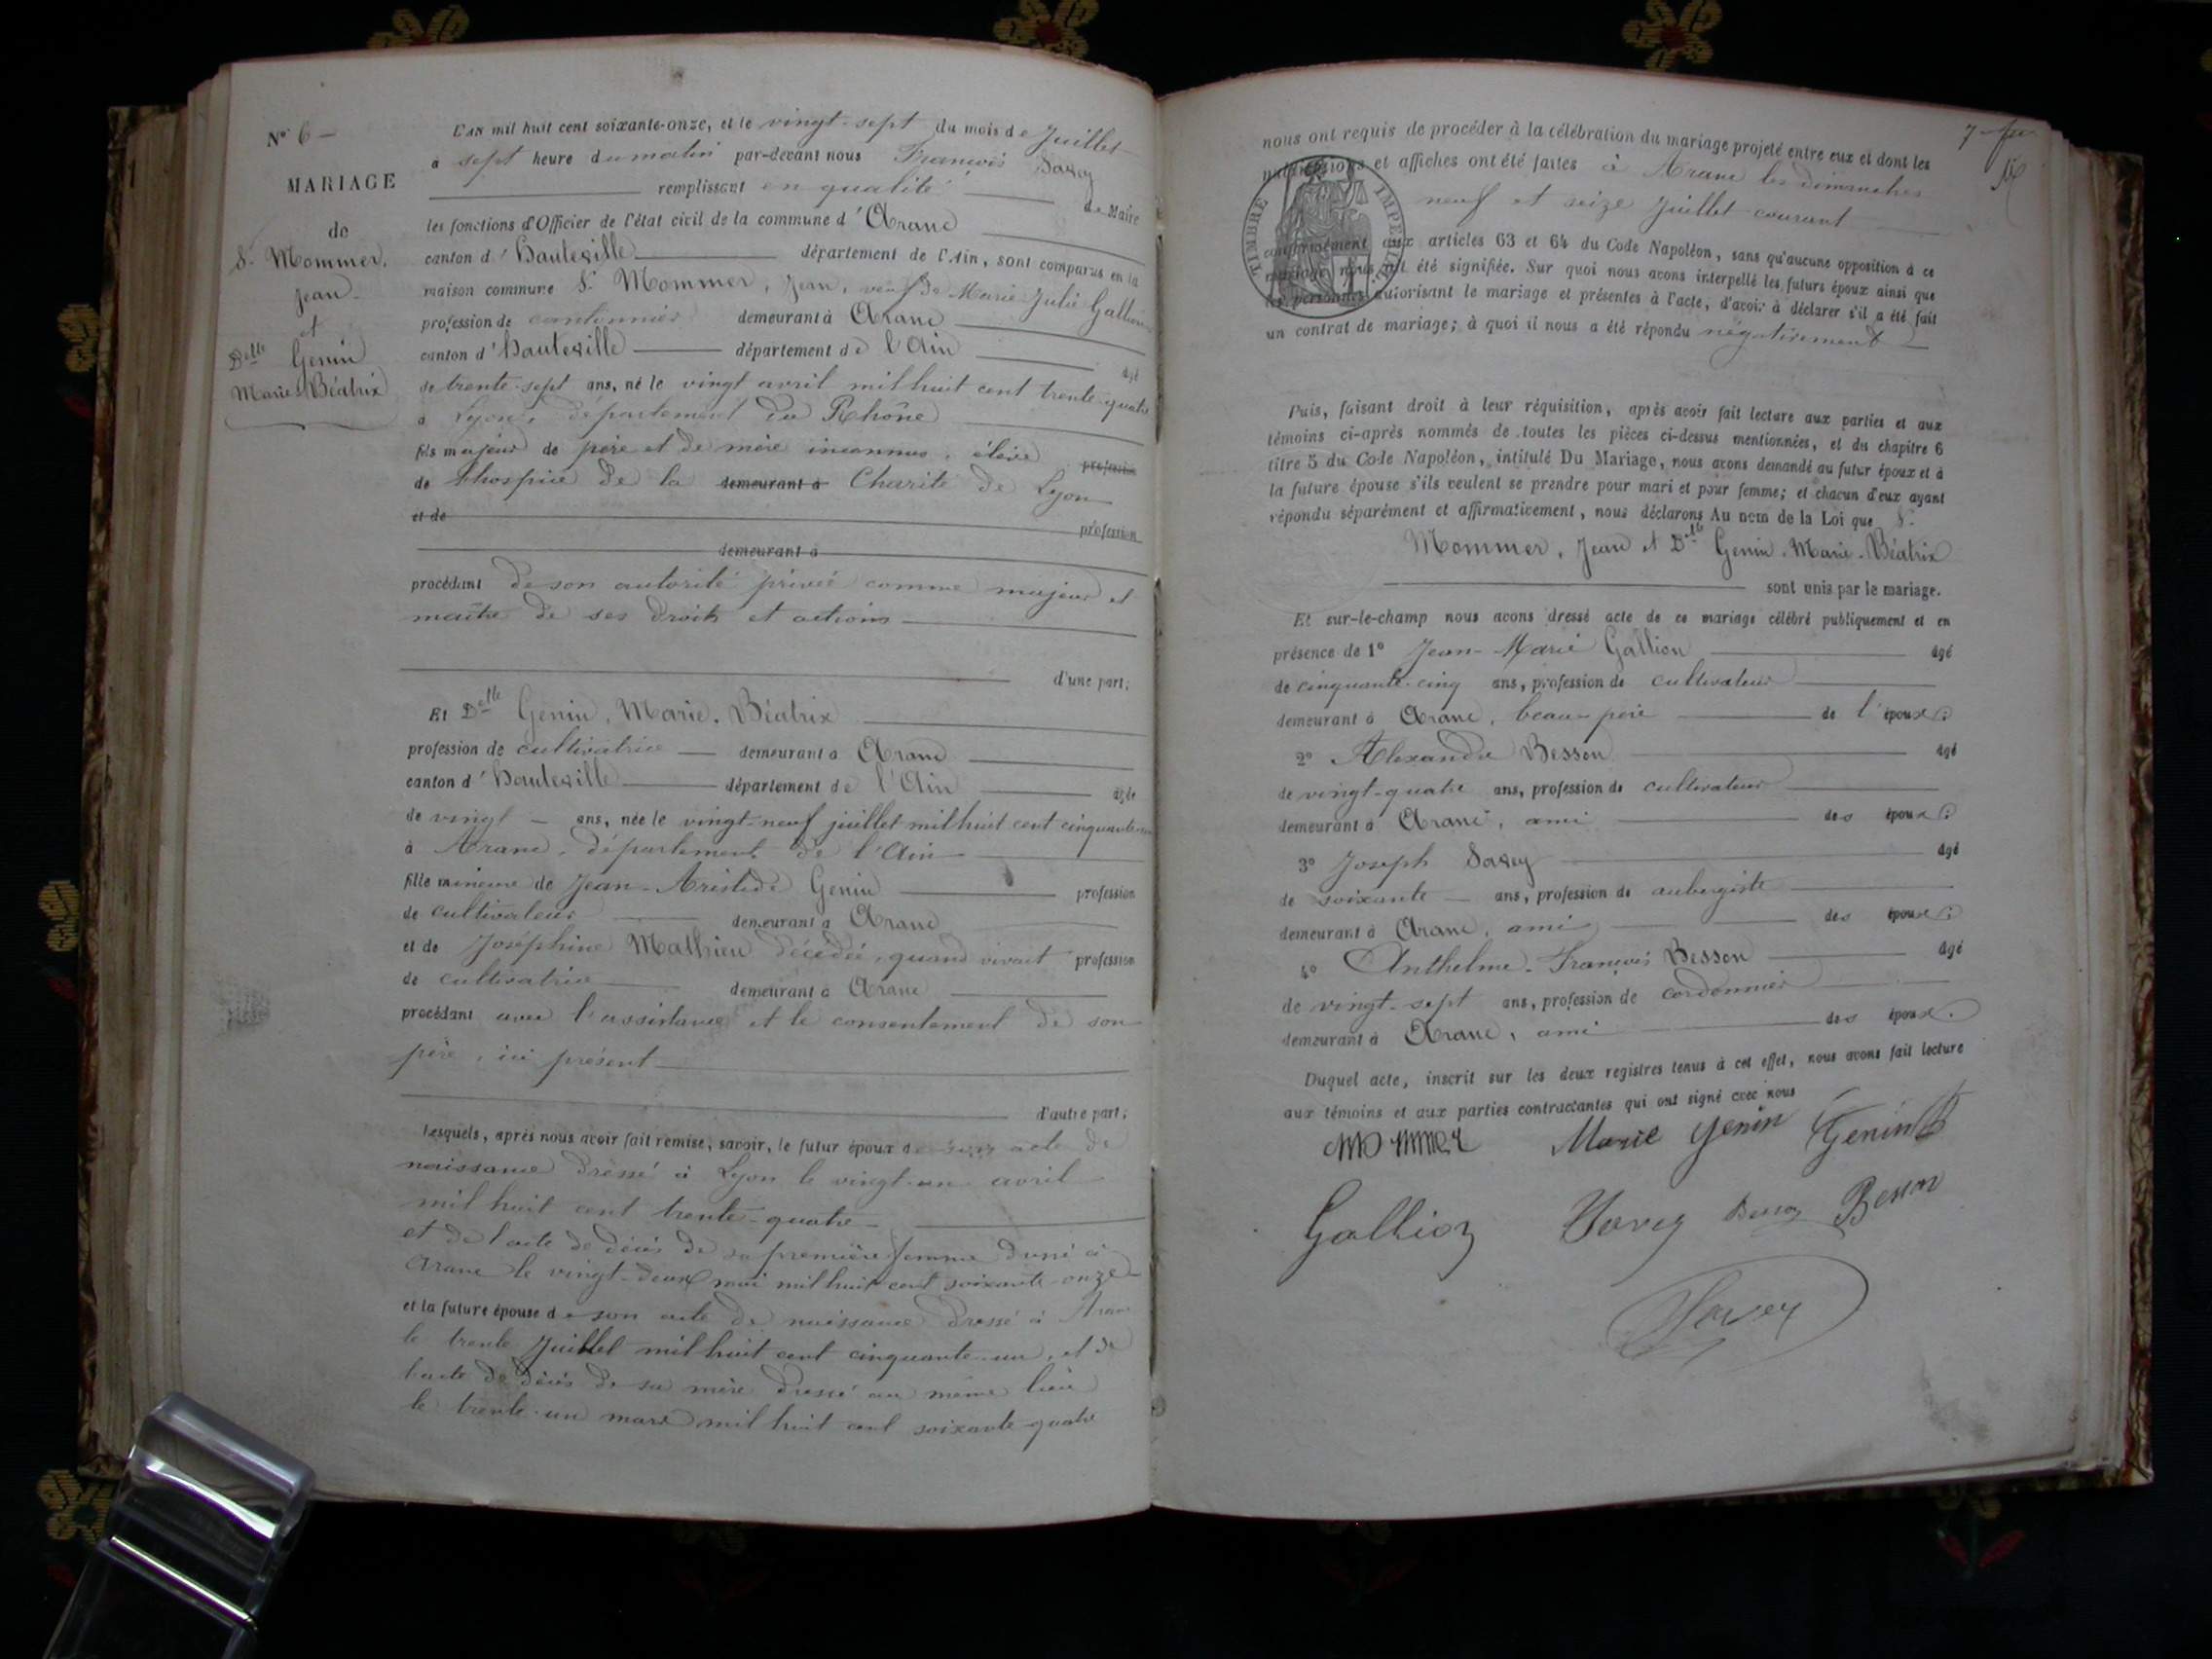 N° 6 –
MARIAGE
de
Sr Mommer,
Jean
et
Delle Genin
Marie-Béatrix
L'an mil huit cent soixante-onze, et le vingt-sept du mois de Juillet
à sept heure du matin par-devant nous François Savey
remplissant en qualité de Maire
les fonctions d'Officier de l'état civil de la commune d'Aranc
canton d'Hauteville département de l'Ain, sont comparus en la
maison commune Sr Mommer, Jean, veuf de Marie Julie Gallion
profession de cantonnier demeurant à Aranc
canton d'Hauteville département de l'Ain âgé
de trente-sept ans, né le vingt avril mil huit cent trente-quatre
à Lyon, département du Rhône
fils majeur de père et de mère inconnus, élève profession
de l'hospice de la demeurant à Charité de Lyon
et de profession
demeurant à
procédant de son autorité privée comme majeur et
maître de ses droits et actions
d'une part;
Et Delle Genin, Marie-Béatrix
profession de cultivatrice demeurant à Aranc
canton d'Hauteville département de l'Ain âgée
de vingt – ans, née le vingt-neuf juillet mil huit cent cinquante-un
à Aranc, département de l'Ain
fille mineure de Jean-Aristide Genin profession
de cultivateur demeurant à Aranc
et de Joséphine Mathieu décédée, quand vivait profession
de cultivatrice demeurant à Aranc
procédant avec l'assistance et le consentement de son
père, ici présent
d'autre part;
Lesquels, après nous avoir fait remise, savoir, le futur époux de son acte de
naissance dressé à Lyon le vingt-un avril
mil huit cent trente-quatre
et de l'acte de décès de sa première femme dressé à
Aranc le vingt-deux mai mil huit cent soixante-onze
et la future épouse de son acte de naissance dressé à Aranc
le trente Juillet mil huit cent cinquante-un, et de
l'acte de décès de sa mère dressé au même lieu
le trente-un mars mil huit cent soixante-quatre
7
nous ont requis de procéder à la célébration du mariage projeté entre eux et dont les
publications et affiches ont été faites à Aranc les dimanches
neuf et seize Juillet courant
TIMBRE IMPÉRIAL
conformément aux articles 63 et 64 du Code Napoléon, sans qu'aucune opposition à ce
mariage nous ait été signifiée. Sur quoi nous avons interpellé les futurs époux ainsi que
les personnes autorisant le mariage et présentes à l'acte, d'avoir à déclarer s'il a été fait
un contrat de mariage; à quoi il nous a été répondu négativement
Puis, faisant droit à leur réquisition, après avoir fait lecture aux parties et aux
témoins ci-après nommés de toutes les pièces ci-dessus mentionnées, et du chapitre 6
titre 5 du Code Napoléon, intitulé Du Mariage, nous avons demandé au futur époux et à
la future épouse s'ils veulent se prendre pour mari et pour femme; et chacun d'eux ayant
répondu séparément et affirmativement, nous déclarons Au nom de la Loi que Sr
Mommer, Jean et Delle Genin, Marie-Béatrix
sont unis par le mariage.
Et sur-le-champ nous avons dressé acte de ce mariage célébré publiquement et en
présence de 1° Jean-Marie Gallion âgé
de cinquante-cinq ans, profession de cultivateur
demeurant à Aranc, beau-père de l'époux;
2° Alexandre Besson âgé
de vingt-quatre ans, profession de cultivateur
demeurant à Aranc, ami des époux;
3° Joseph Savey âgé
de soixante – ans, profession de aubergiste
demeurant à Aranc, ami des époux;
4° Anthelme-François Besson âgé
de vingt-sept ans, profession de cordonnier
demeurant à Aranc, ami des époux.
Duquel acte, inscrit sur les deux registres tenus à cet effet, nous avons fait lecture
aux témoins et aux parties contractantes qui ont signé avec nous
Mommer Marie Genin Genin
Gallion Savey Besson Besson
Savey